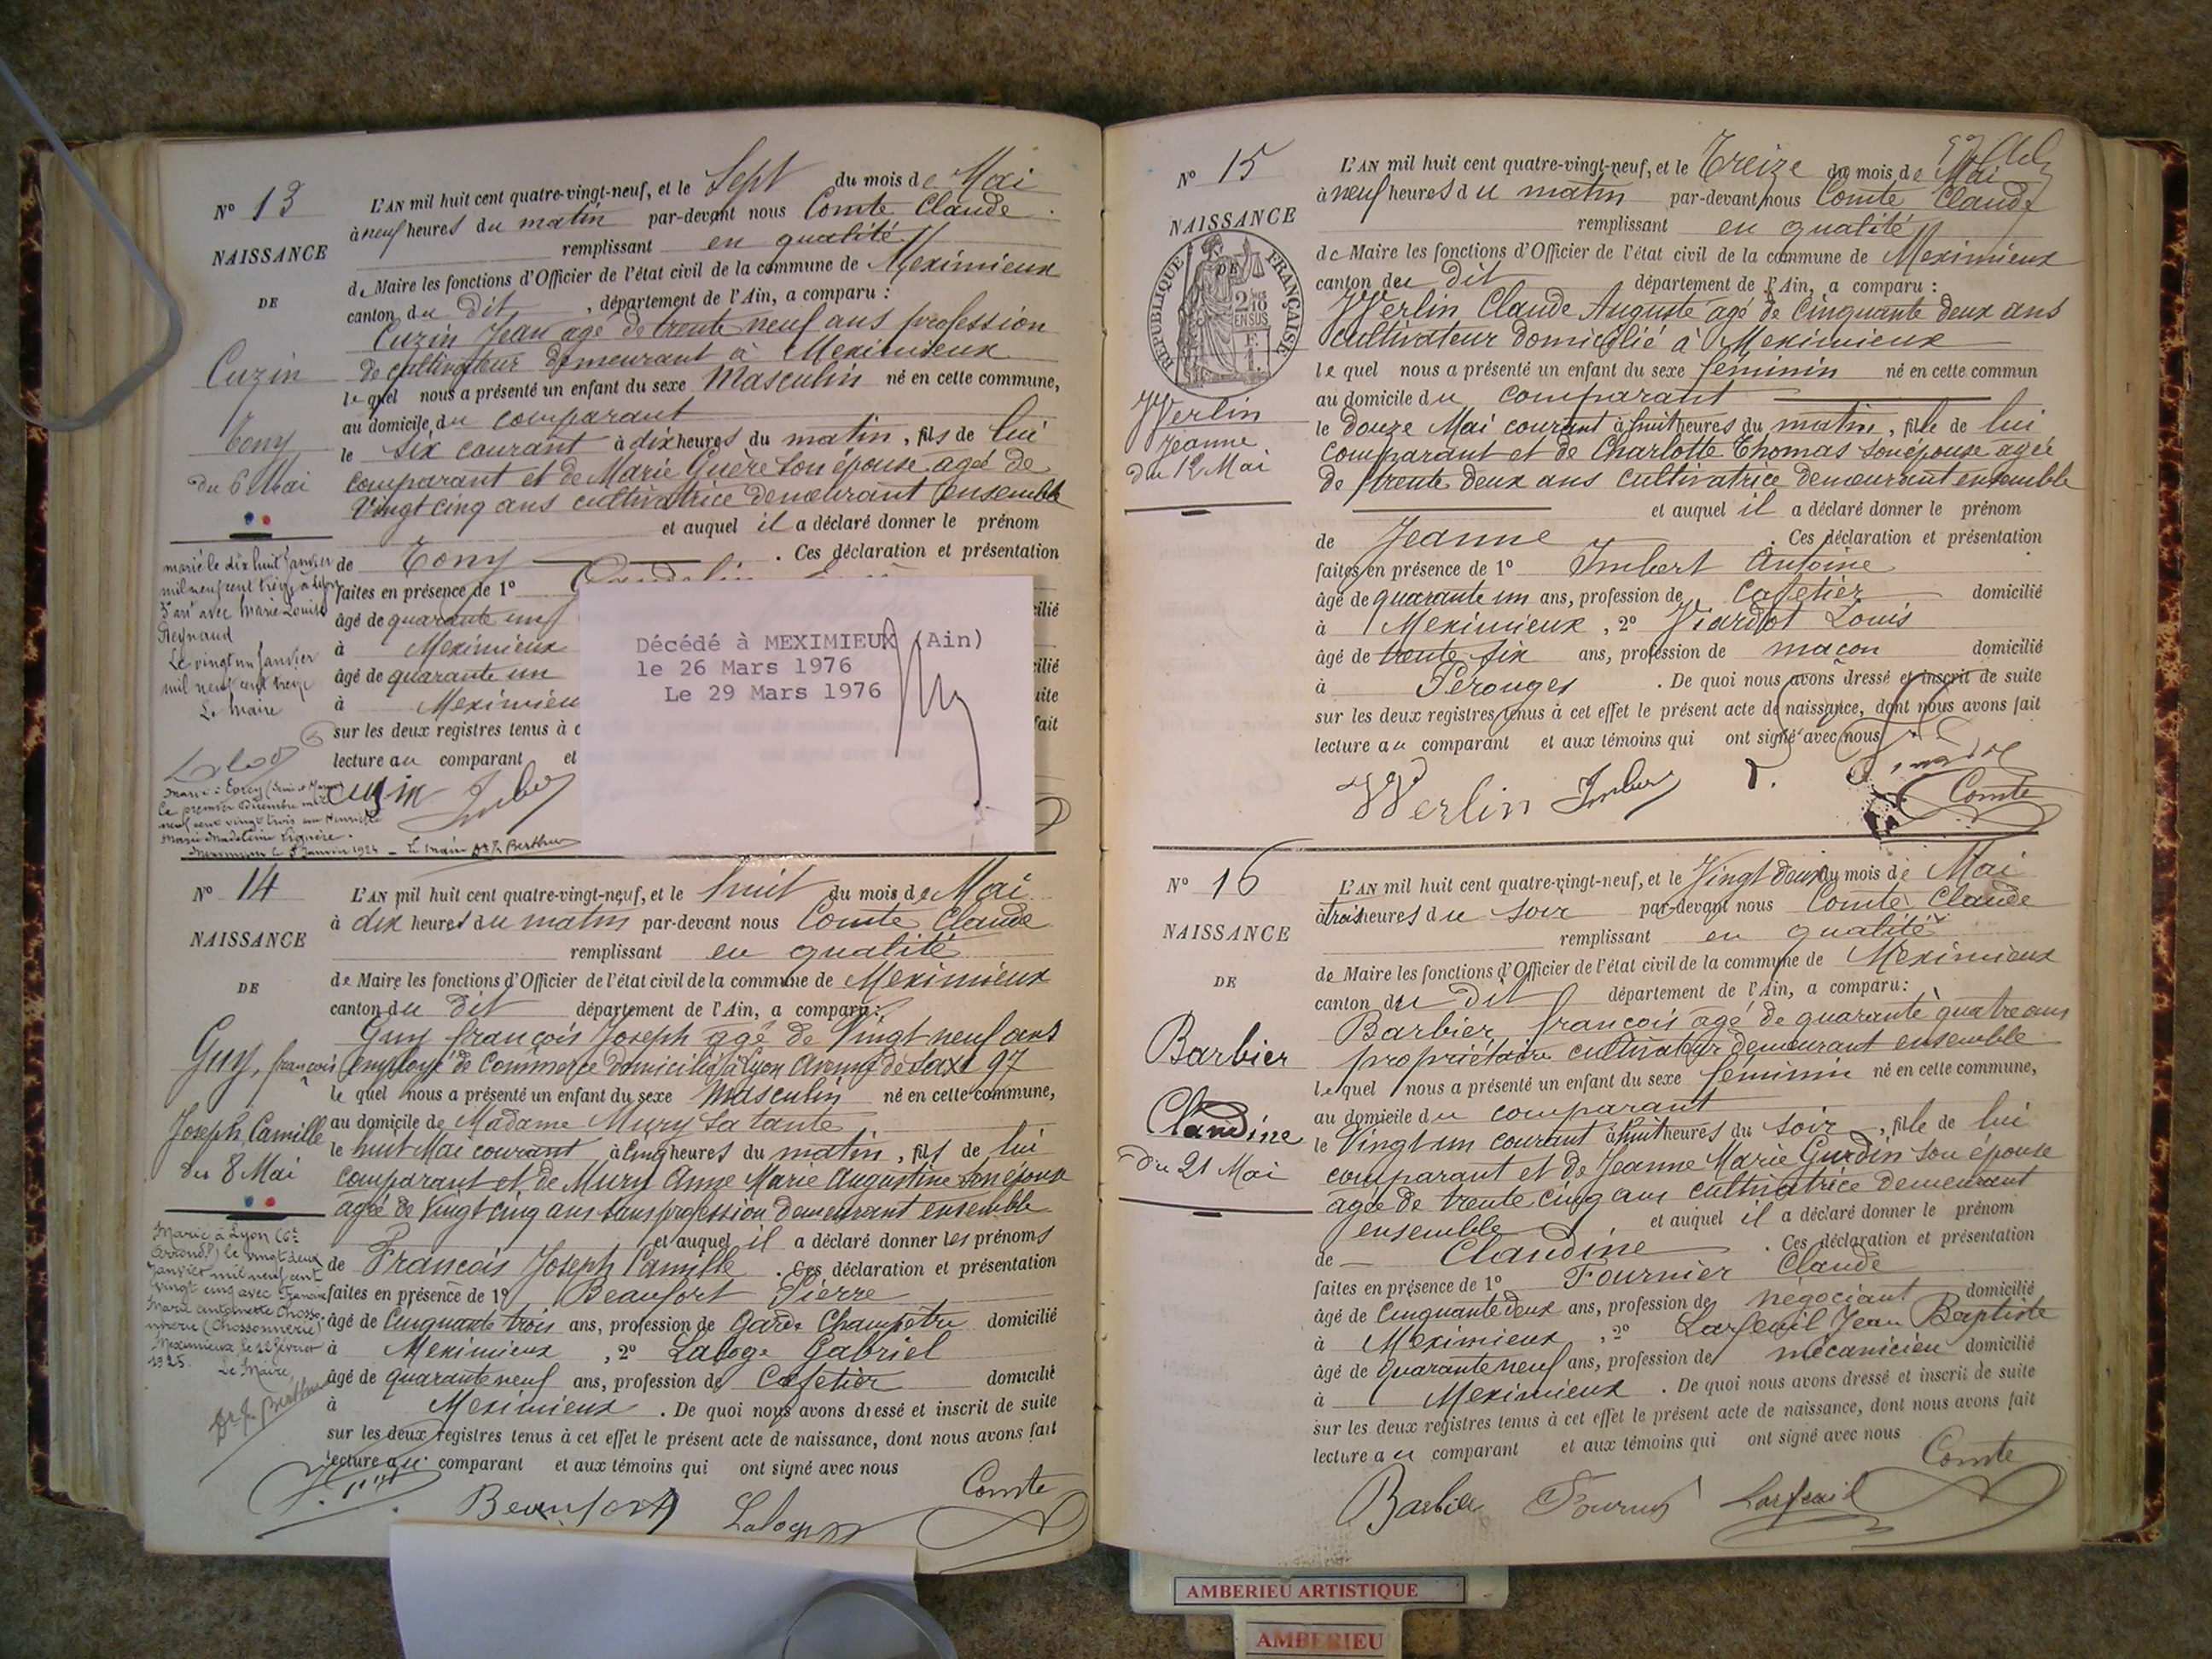 N° 13
NAISSANCE
DE
Cuzin
Tony
du 6 Mai
marié le dix huit Janvier
mil neuf cent treize à Lyon
3e arrt avec Marie Louise
Reynaud
Le vingt un Janvier
mil neuf cent treize
Le Maire
Marié à
Le premier Décembre mil
neuf cent vingt trois avec Henriette
Marie Madeleine
Meximieux le 5 Janvier 1924 - Le Maire Dr J. Berthier
L'AN mil huit cent quatre-vingt-neuf, et le Sept du mois de Mai
à neuf heures du matin par-devant nous Comte Claude
remplissant en qualité
de Maire les fonctions d'Officier de l'état civil de la commune de Meximieux
canton du dit, département de l'Ain, a comparu :
Cuzin Jean agé de trente neuf ans profession
de cultivateur demeurant à Meximieux
lequel nous a présenté un enfant du sexe Masculin né en cette commune,
au domicile du comparant
le six courant à dix heures du matin, fils de lui
comparant et de Marie Guère son épouse agée de
Vingt cinq ans cultivatrice demeurant ensemble
et auquel il a déclaré donner le prénom
de Tony. Ces déclaration et présentation
faites en présence de 1°
âgé de quarante un
à Meximieux
âgé de quarante un
à Meximieu
sur les deux registres tenus à c
lecture au comparant et
cilié
cilié
uite
fait
Décédé à MEXIMIEUX (Ain)
le 26 Mars 1976
Le 29 Mars 1976
Cuzin Imber
N° 14
NAISSANCE
DE
Guy, françois
Joseph Camille
du 8 Mai
Marié à Lyon (6e
Arrondt) le vingt deux
Janvier mil neuf cent
vingt cinq avec Francine
Marie Antoinette Chosso-
nnerie (Chossonnerie)
Meximieux, le 12 février
1925.
Le Maire,
Dr J. Berthier
L'AN mil huit cent quatre-vingt-neuf, et le huit du mois de Mai
à dix heures du matin par-devant nous Comte Claude
remplissant en qualité
de Maire les fonctions d'Officier de l'état civil de la commune de Meximieux
canton du dit département de l'Ain, a comparu :
Guy françois Joseph agé de Vingt neuf ans
employé de Commerce domicilié à Lyon Avenue de Saxe 97
lequel nous a présenté un enfant du sexe Masculin né en cette commune,
au domicile de Madame Mury sa tante
le huit Mai courant à cinq heures du matin, fils de lui
comparant et de Mury Anne Marie Augustine son épouse
agée de Vingt cinq ans sans profession demeurant ensemble
et auquel il a déclaré donner les prénoms
de François Joseph Camille. Ces déclaration et présentation
faites en présence de 1° Beaufort Pierre
âgé de Cinquante trois ans, profession de Garde Champêtre domicilié
à Meximieux, 2° Laloge Gabriel
âgé de quarante neuf ans, profession de Cafetier domicilié
à Meximieux. De quoi nous avons dressé et inscrit de suite
sur les deux registres tenus à cet effet le présent acte de naissance, dont nous avons fait
lecture au comparant et aux témoins qui ont signé avec nous
Beaufort Laloge Comte
N° 15
NAISSANCE
RÉPUBLIQUE FRANÇAISE
DE
2/10
EN SUS
Werlin
Jeanne
du 12 Mai
L'AN mil huit cent quatre-vingt-neuf, et le Treize du mois de Mai
à neuf heures du matin par-devant nous Comte Claude
remplissant en qualité
de Maire les fonctions d'Officier de l'état civil de la commune de Meximieux
canton du dit département de l'Ain, a comparu :
Werlin Claude Auguste agé de Cinquante deux ans
cultivateur domicilié à Meximieux
lequel nous a présenté un enfant du sexe féminin né en cette commun
au domicile du comparant
le douze Mai courant à huit heures du matin, fille de lui
comparant et de Charlotte Thomas son épouse agée
de trente deux ans cultivatrice demeurant ensemble
et auquel il a déclaré donner le prénom
de Jeanne. Ces déclaration et présentation
faites en présence de 1° Imbert Antoine
âgé de quarante un ans, profession de Cafetier domicilié
à Meximieux, 2° Viardot Louis
âgé de trente six ans, profession de maçon domicilié
à Pérouges. De quoi nous avons dressé et inscrit de suite
sur les deux registres tenus à cet effet le présent acte de naissance, dont nous avons fait
lecture au comparant et aux témoins qui ont signé avec nous
Werlin Imber Comte
N° 16
NAISSANCE
DE
Barbier
Claudine
du 21 Mai
L'AN mil huit cent quatre-vingt-neuf, et le Vingt deux du mois de Mai
à trois heures du soir par-devant nous Comte Claude
remplissant en qualité
de Maire les fonctions d'Officier de l'état civil de la commune de Meximieux
canton du dit département de l'Ain, a comparu :
Barbier françois agé de quarante quatre ans
propriétaire cultivateur demeurant ensemble
lequel nous a présenté un enfant du sexe féminin né en cette commune,
au domicile du comparant
le Vingt un courant à huit heures du soir, fille de lui
comparant et de Jeanne Marie Gurdin son épouse
agée de trente cinq ans cultivatrice demeurant
ensemble et auquel il a déclaré donner le prénom
de Claudine. Ces déclaration et présentation
faites en présence de 1° Fournier Claude
âgé de Cinquante deux ans, profession de négociant domicilié
à Meximieux, 2° Larfeuil Jean Baptiste
âgé de quarante neuf ans, profession de mécanicien domicilié
à Meximieux. De quoi nous avons dressé et inscrit de suite
sur les deux registres tenus à cet effet le présent acte de naissance, dont nous avons fait
lecture au comparant et aux témoins qui ont signé avec nous
Barbier Fournier Larfeuil Comte
AMBERIEU ARTISTIQUE
AMBERIEU